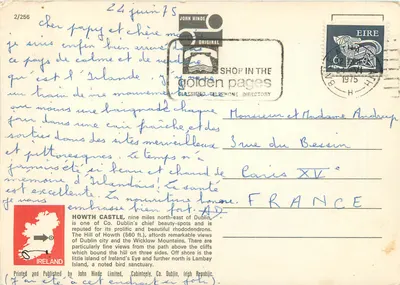 2/256
24 juin 75
Cher papy et chère mamie
je suis enfin bien arrivée
pays de calme et de
qu'est l'Irlande.
un train de vie mouvementé
nous mène une
jour dans une cuir fraîche et des
sorties dans des sites merveilleux
et pittoresques. Le temps a
jamais été si beau et chaud de
mémoire d'Irlandais! La santé
est excellente. La nourriture bonne
je vous embrasse bien fort. AD
JOHN HINDE
ORIGINAL
SHOP IN THE
golden pages
CLASSIFIED TELEPHONE DIRECTORY
EIRE
1975
Monsieur et Madame
3 rue du Bessin
Paris XVe
FRANCE
IRELAND
HOWTH CASTLE, nine miles north-east of Dublin,
is one of Co. Dublin's chief beauty-spots and is
reputed for its prolific and beautiful rhododendrons.
The Hill of Howth (560 ft.), affords remarkable views
of Dublin city and the Wicklow Mountains. There are
particularly fine views from the path above the cliffs
which bound the hill on three sides. Off shore is the
little island of Ireland's Eye and further north is Lambay
Island, a noted bird sanctuary.
Printed and Published by John Hinde Limited, Cabinteely, Co. Dublin, Irish Republic.
(J'ai été à cet endroit en photo).